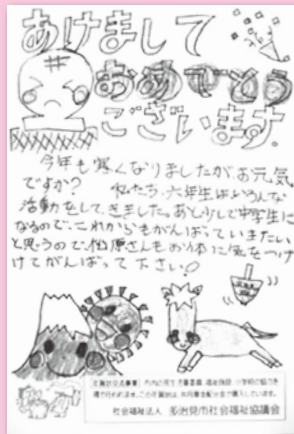 あけまして
おめでとう
ございます。
今年も寒くなりましたが、お元気
ですか? 私たち、六年生はいろんな
活動をして、きました。あと少しで中学生に
なるので、これからもがんばっていきたい
と思うので、原さんもお体に気をつけ
てがんばって下さい。
社会福祉法人 多治見市社会福祉協議会